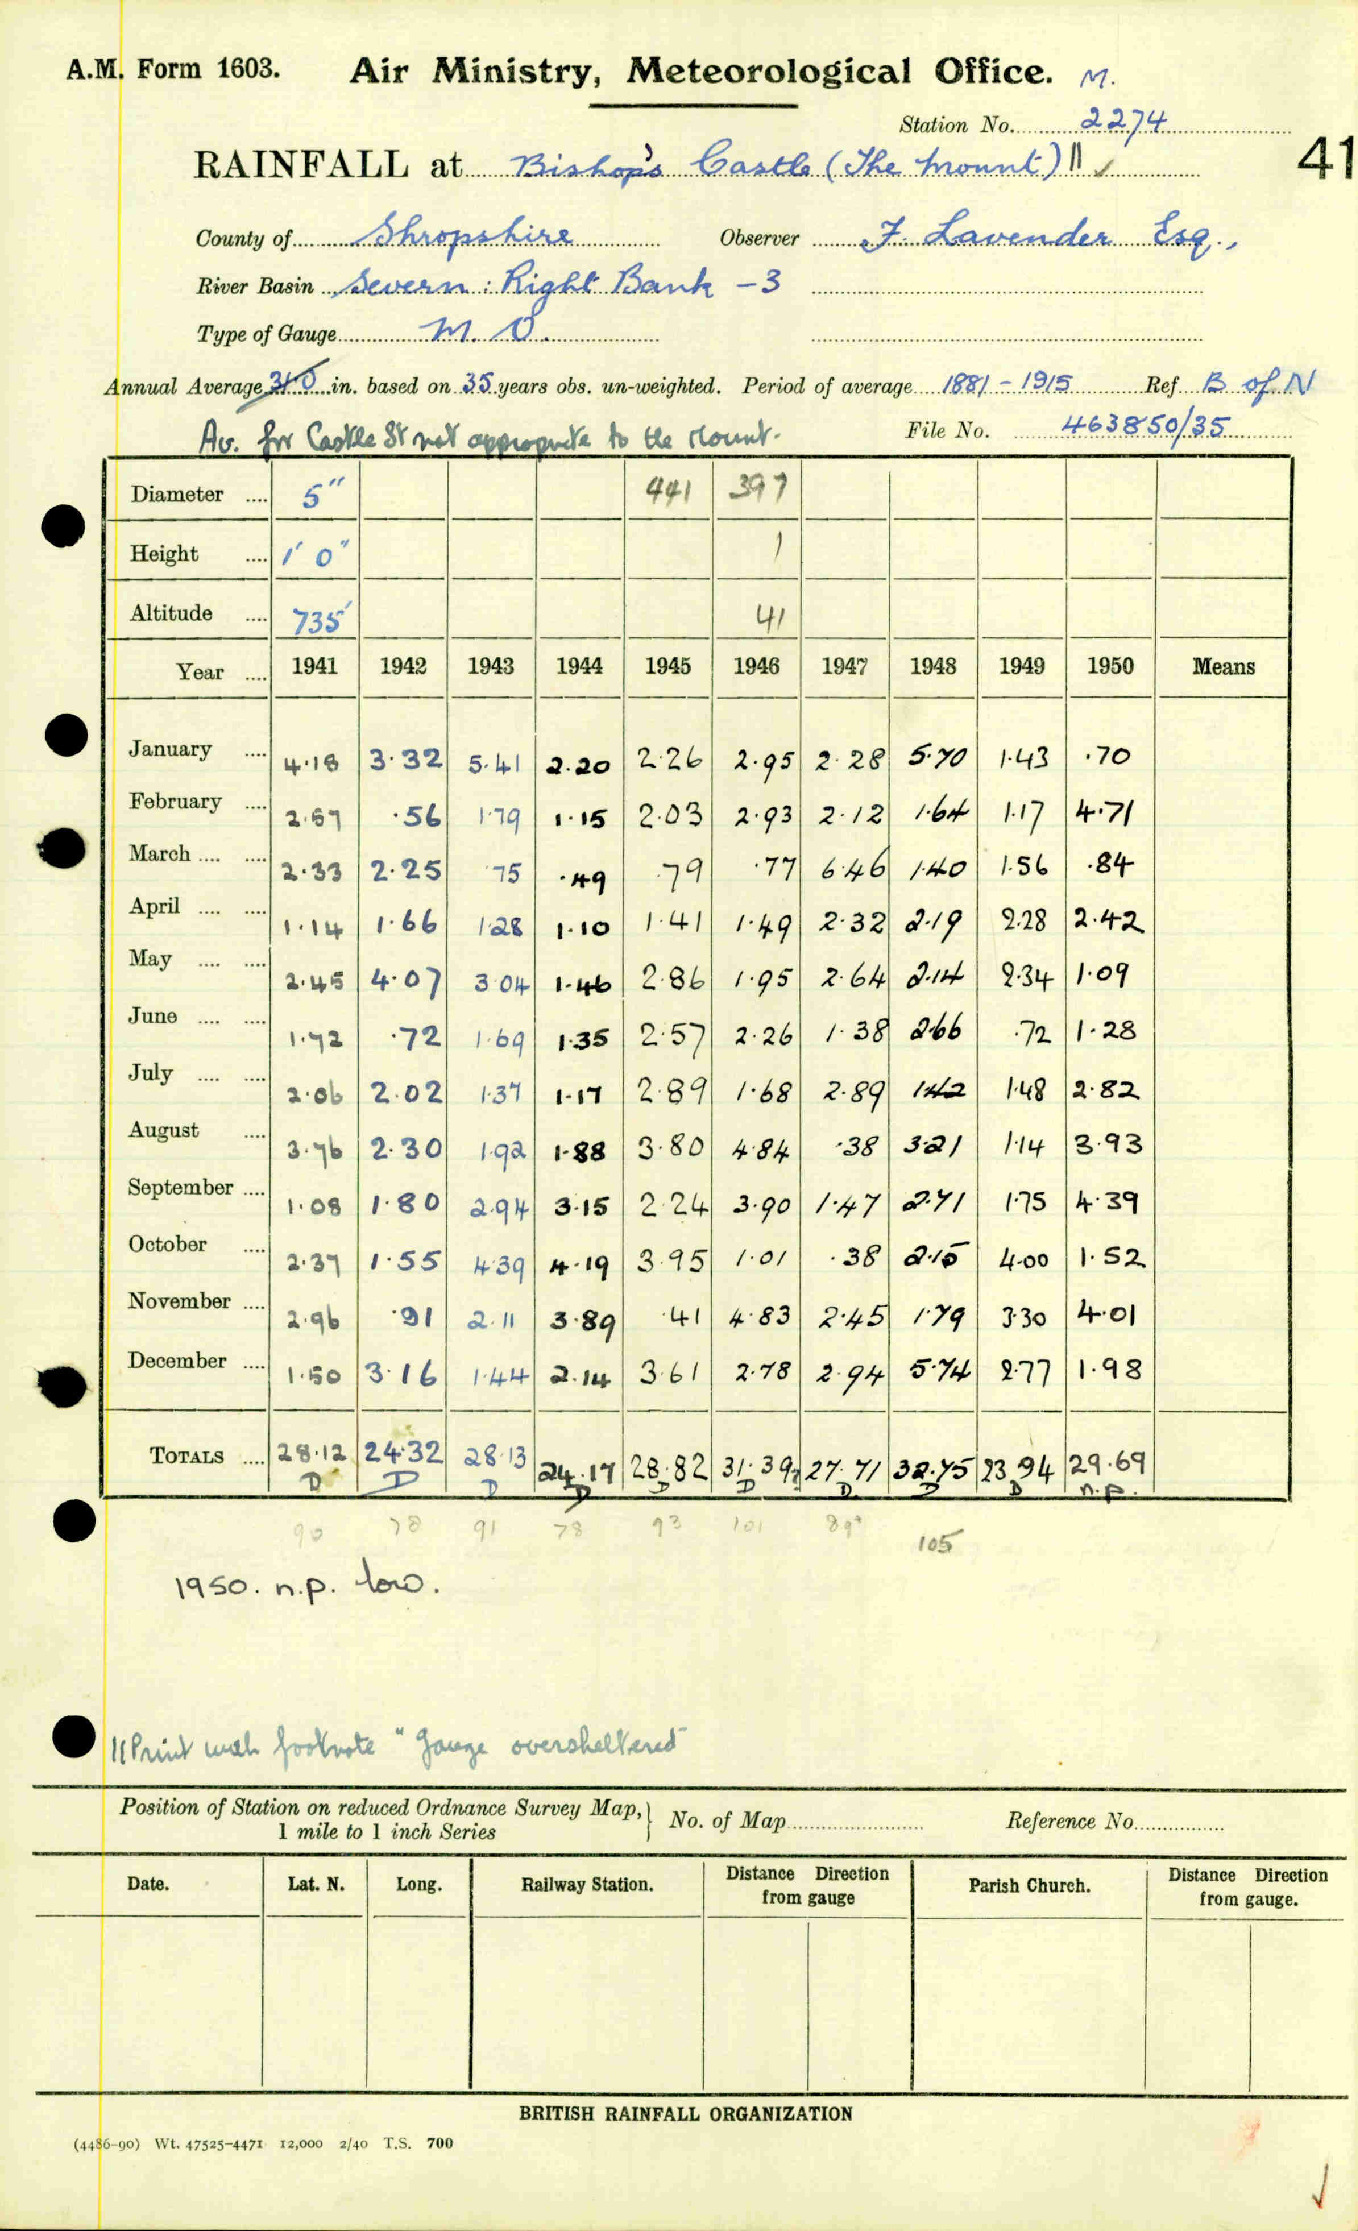 A.M. Form 1603. Air Ministry, Meteorological Office. M.
Station No. 2274
RAINFALL at Bishop's Castle (The Mount) || ✓ 41
County of Shropshire Observer F. Lavender Esq.,
River Basin Severn : Right Bank – 3
Type of Gauge M. O.
Annual Average 31.0 in. based on 35 years obs. un-weighted. Period of average 1881 – 1915 Ref. B of N
Av. for Castle St not appropriate to the Mount. File No. 463850/35
Diameter .... 5" 441 397
Height .... 1' 0" 1
Altitude .... 735' 41
Year .... 1941 1942 1943 1944 1945 1946 1947 1948 1949 1950 Means
January .... 4.18 3.32 5.41 2.20 2.26 2.95 2.28 5.70 1.43 .70
February .... 2.57 .56 1.79 1.15 2.03 2.93 2.12 1.64 1.17 4.71
March .... .... 2.33 2.25 .75 .49 .79 .77 6.46 1.40 1.56 .84
April .... .... 1.14 1.66 1.28 1.10 1.41 1.49 2.32 2.19 2.28 2.42
May .... .... 2.45 4.07 3.04 1.46 2.86 1.95 2.64 2.14 2.34 1.09
June .... .... 1.72 .72 1.69 1.35 2.57 2.26 1.38 2.66 .72 1.28
July .... .... 2.06 2.02 1.37 1.17 2.89 1.68 2.89 1.42 1.48 2.82
August .... 3.76 2.30 1.92 1.88 3.80 4.84 .38 3.21 1.14 3.93
September .... 1.08 1.80 2.94 3.15 2.24 3.90 1.47 2.71 1.75 4.39
October .... 2.37 1.55 4.39 4.19 3.95 1.01 .38 2.15 4.00 1.52
November .... 2.96 .91 2.11 3.89 .41 4.83 2.45 1.79 3.30 4.01
December .... 1.50 3.16 1.44 2.14 3.61 2.78 2.94 5.74 2.77 1.98
TOTALS .... 28.12 24.32 28.13 24.17 28.82 31.39 27.71 32.75 23.94 29.69
D D D D D D D D D n.p.
90 78 91 78 93 101 89 105
1950. n.p. low.
|| Print with footnote "Gauge oversheltered"
Position of Station on reduced Ordnance Survey Map, } No. of Map Reference No.
1 mile to 1 inch Series
Date. Lat. N. Long. Railway Station. Distance Direction from gauge Parish Church. Distance Direction from gauge.
BRITISH RAINFALL ORGANIZATION
(4486-90) Wt. 47525-4471 12,000 2/40 T.S. 700